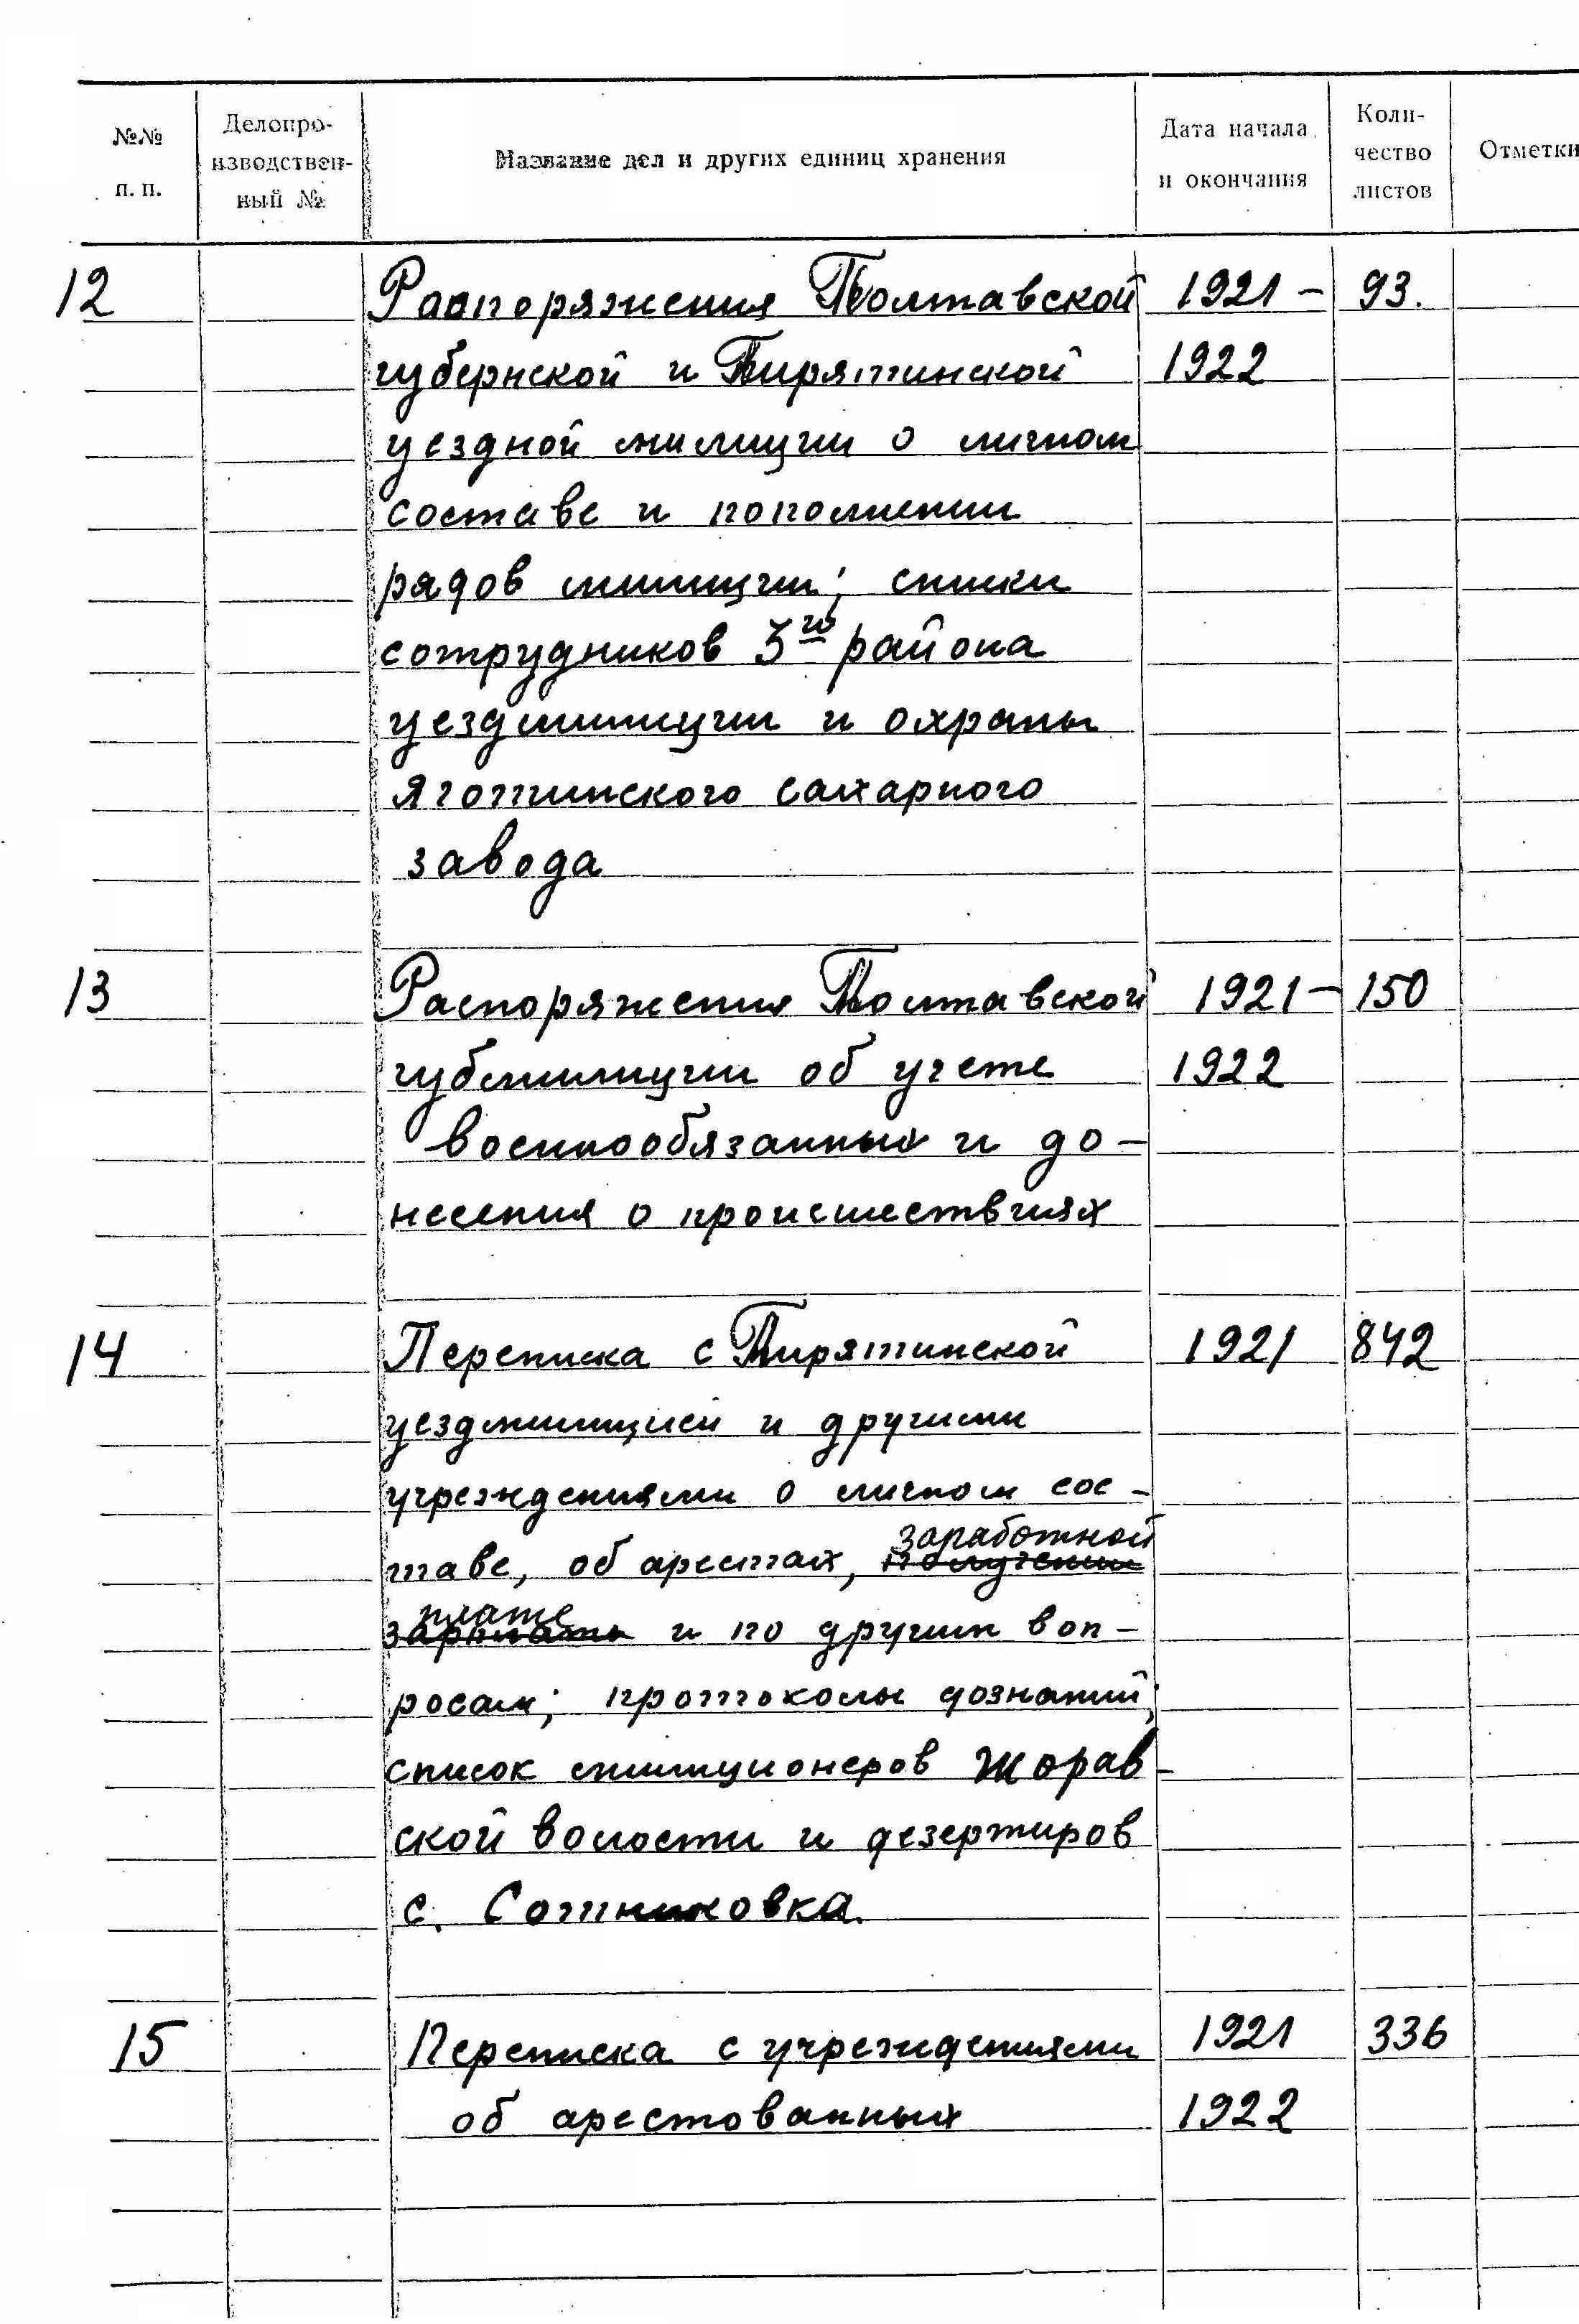 №№ п. п. Делопроизводствен-ный № Название дел и других единиц хранения Дата начала и окончания Коли-чество листов Отметки
12 Распоряжения Полтавской 1921 – 93.
губернской и Пирятинской 1922
уездной милиции о личном
составе и пополнении
рядов милиции; списки
сотрудников 3го района
уездмилиции и охраны
Яготинского сахарного
завода
13 Распоряжения Полтавской 1921 – 150
губмилиции об учете 1922
военнообязанных и до-
несения о происшествиях
14 Переписка с Пирятинской 1921 842
уездмилицией и другими
учреждениями о личном сос-
таве, об арестах, получении заработной
зарплаты плате и по другим воп-
росам; протоколы дознаний;
список милиционеров Жорав-
ской волости и дезертиров
с. Сотниковка.
15 Переписка с учреждениями 1921 336
об арестованных 1922